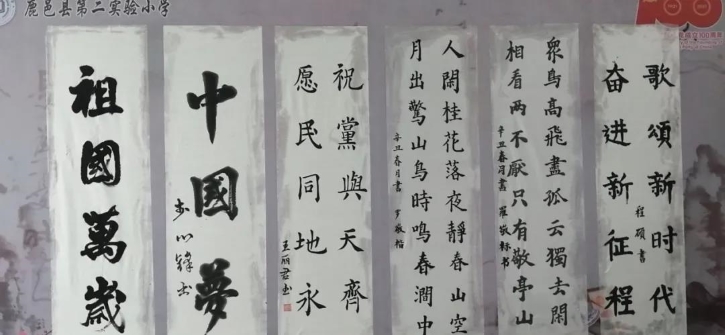 鹿邑县第二实验小学
祖國萬歲
中國夢
祝黨與天齊
愿民同地永
王丽君书
人閑桂花落夜靜春山空
月出驚山鳥時鳴春澗中
辛丑春月書 罗敬楷
衆鸟高飛盡孤云獨去閑
相看两不厭只有敬亭山
辛丑春月書 羅敬
歌頌新时代
奋进新征程
程硕書